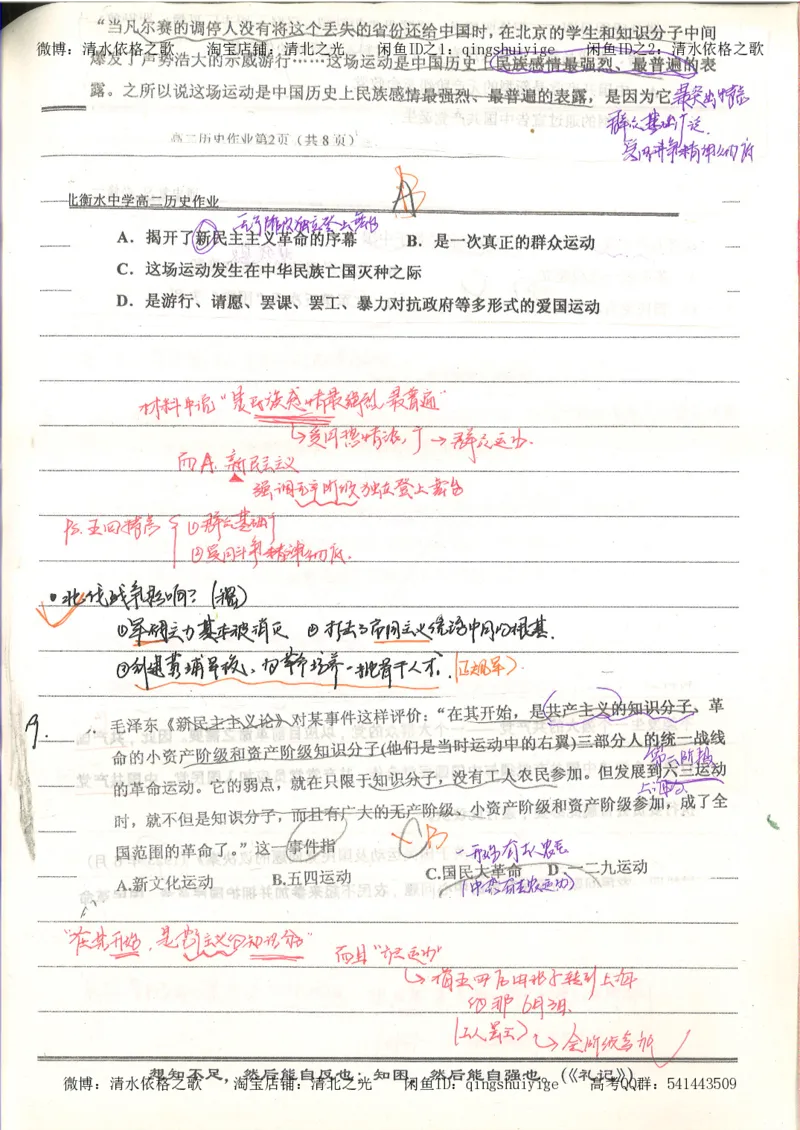 “当凡尔赛的调停人没有将这个丢失的省份还给中国时,在北京的学生和知识分子中间
微博:清水依格之歌 淘宝店铺:清北之光 闲鱼ID之1:qingshuiyige 闲鱼ID之2:清水依格之歌
爆发了声势浩大的示威游行……这场运动是中国历史上民族感情最强烈、最普遍的表
露。之所以说这场运动是中国历史上民族感情最强烈、最普遍的表露,是因为它
最突出特点
群众基础广泛
爱国斗争精神
高二历史作业第2页(共8页)
AB
北衡水中学高二历史作业
无产阶级独立登上舞台
A.揭开了新民主主义革命的序幕 B.是一次真正的群众运动
C.这场运动发生在中华民族亡国灭种之际
D.是游行、请愿、罢课、罢工、暴力对抗政府等多形式的爱国运动
材料中说“是民族感情最强烈 最普遍”
爱国热情浓,广→群众运动.
而A.新民主义
强调无产阶级独立登上舞台
Ps.五四特点 ①群众基础广
②爱国斗争精神彻底.
•北伐战争影响?(强)
①军阀主力基本被消灭 ②打击了帝国主义统治中国的根基.
③创建黄埔军校,为革命培养一批骨干人才.(正规军)
9.
毛泽东《新民主主义论》对某事件这样评价:“在其开始,是共产主义的知识分子、革
命的小资产阶级和资产阶级知识分子(他们是当时运动中的右翼)三部分人的统一战线
第二阶段
的革命运动。它的弱点,就在只限于知识分子,没有工人农民参加。但发展到六三运动
上海
时,就不但是知识分子,而且有广大的无产阶级、小资产阶级和资产阶级参加,成了全
国范围的革命了。”这一事件指
CB
一开始有工人农民
A.新文化运动 B.五四运动 C.国民大革命 D.一二九运动
(中共有工农运动)
“在其开始,是共产主义的知识分子”
而且“六三运动”
指五四后由北京转到上海
的那6月3日.
(工人罢工)
全阶级参加
想知不足,然后能自反也;知困,然后能自强也。(《礼记》)
微博:清水依格之歌 淘宝店铺:清北之光 闲鱼ID:qingshuiyige 高考QQ群:541443509